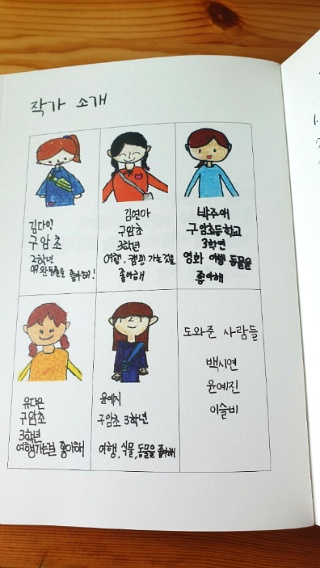 작가 소개
김다인
구암초
2학년
애완동물을 좋아해!
김연아
구암초
3학년
여행, 캠핑 가는 것을
좋아해
박주애
구암초등학교
3학년
영화 여행 동물을
좋아해
유다은
구암초
3학년
여행가는걸 좋아해
윤예지
구암초 3학년
여행, 식물, 동물을 좋아해
도와준 사람들
백시연
윤예진
이슬비